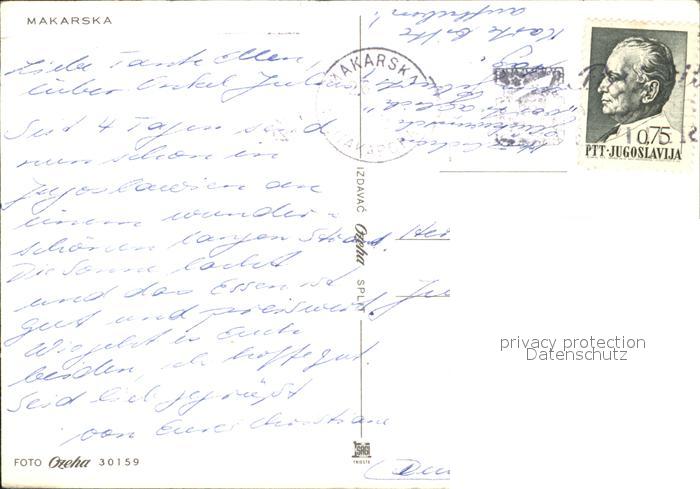 MAKARSKA
Liebe Tante Ellen,
lieber Onkel Julius
Seit 4 Tagen sind
nun schon in
Jugoslawien an
einem wunder-
schönen langen Strand.
Die Sonne lacht
und das Essen ist
gut und preiswert.
Wie geht es Euch
beiden, ich hoffe gut.
Seid lieb gegrüßt
von Eurer Christiane
FOTO Ozeha 30159
IZDAVAČ Ozeha SPLIT
Karte bitte
aufheben!
MAKARSKA
0,75
PTT-JUGOSLAVIJA
privacy protection
Datenschutz